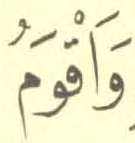 وَاَقْوَمُ